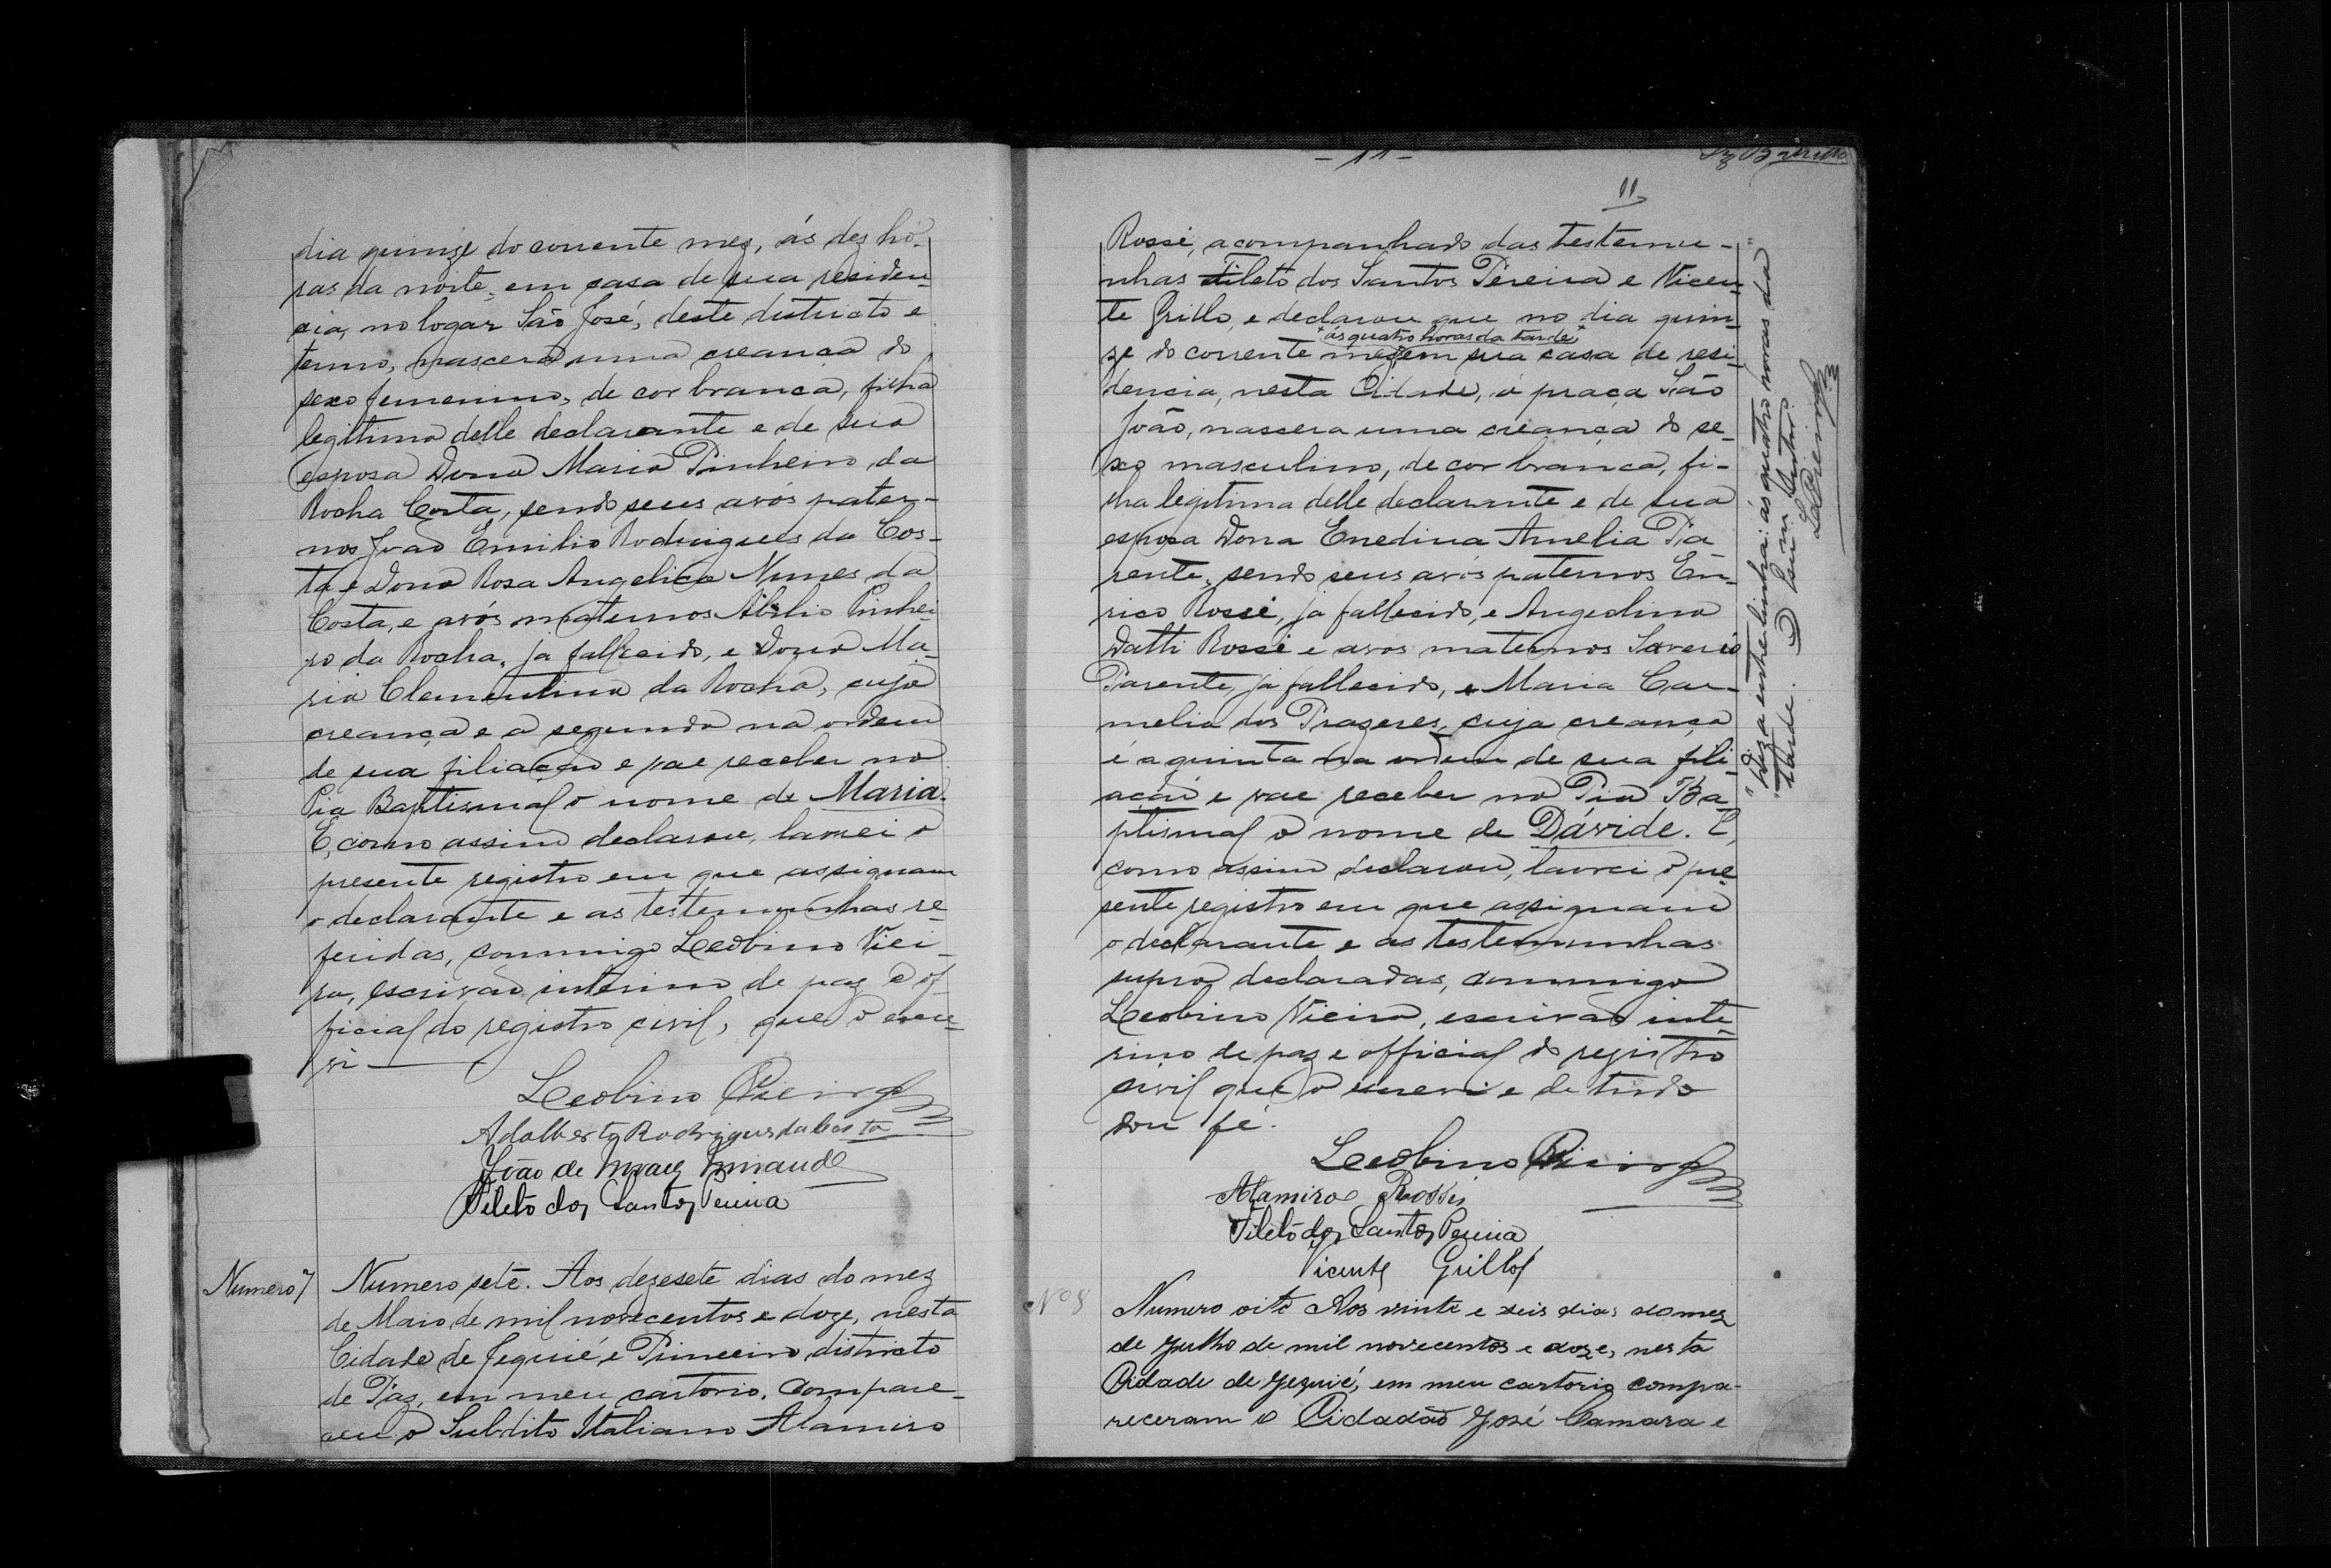 dia quinze do corrente mez, ás dez ho-
ras da noite, em casa de sua residen-
cia, no logar São José, deste districto e
termo, nascera uma creança do
sexo femenino, de cor branca, filha
legitima delle declarante e de sua
esposa Dona Maria Pinheiro da
Rocha Costa, sendo seus avós pater-
nos João Emilio Rodrigues da Cos-
ta e Dona Rosa Angelica Nunes da
Costa, e avós maternos Abilio Pinhei-
ro da Rocha, já fallecido, e Dona Ma-
ria Clementina da Rocha, cuja
creança e a segunda na ordem
de sua filiação e vae receber na
Pia Baptismal o nome de Maria.
E, como assim declarou, lavrei o
presente registro em que assignam
o declarante e as testemunhas re-
feridas, commigo Leobino Viei-
ra, escrivão interino de paz e of-
ficial do registro civil, que o escre-
vi
Leobino Vieira
Adalberto Rodrigues da Costa
João de
Fileto dos Santos Pereira
Numero 7 Numero sete. Aos dezesete dias do mez
de Maio de mil novecentos e doze, nesta
Cidade de Jequié e Primeiro districto
de Paz, em meu cartorio, compare-
ceu o Subdito Italiano Alamiro
- 11 -
Barretto
11
Rossi, acompanhado das testemu-
nhas Fileto dos Santos Pereira e Vicen-
te Grillo, e declarou que no dia quin-
+ ás quatro horas da tarde +
ze do corrente mez em sua casa de resi-
dencia, nesta Cidade, á praça São
João, nascera uma creança do se-
xo masculino, de cor branca, fi-
lha legitima delle declarante e de sua
esposa Dona Enedina Amelia Pa-
rente, sendo seus avós paternos En-
rico Rossi, já fallecido, e Angelina
Datti Rossi e avós maternos Saverio
Parente, já fallecido, e Maria Car-
melia dos Prazeres, cuja creança
é a quinta na ordem de sua fili-
ação e vae receber na Pia Ba-
ptismal o nome de Dávide. E,
como assim declarou, lavrei o pre-
sente registro em que assignam
o declarante e as testemunhas
supra declaradas, commigo
Leobino Vieira, escrivão inte-
rino de paz e official do registro
civil que o escrevi e de tudo
dou fé.
Leobino Vieira
Alamiro Rossi
Fileto dos Santos Pereira
Vicente Grillo
Nº 8 Numero oito Aos vinte e seis dias do mez
de Julho de mil novecentos e doze, nesta
Cidade de Jequié, em meu cartorio compa-
receram o Cidadão José Camara e
"Diz a entrelinha: ás quatro horas da
"tarde. O
LVieira